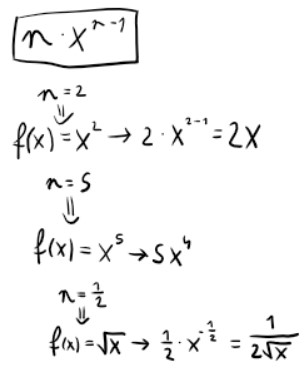 n · x^{n-1}
n = 2
⇓
f(x) = x² → 2 · x^{2-1} = 2x
n = 5
⇓
f(x) = x⁵ → 5x⁴
n = 1/2
⇓
f(x) = √x → 1/2 · x^{-1/2} = 1/(2√x)